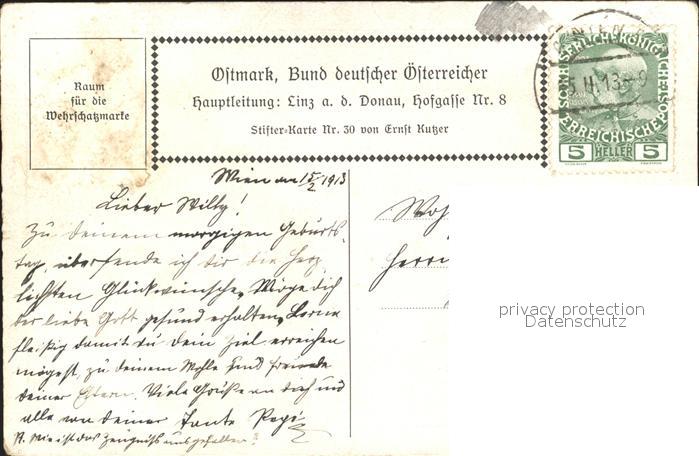 Raum
für die
Wehrschatzmarke
Ostmark, Bund deutscher Österreicher
Hauptleitung: Linz a. d. Donau, Hofgasse Nr. 8
Stifter-Karte Nr. 30 von Ernst Kutzer
5 HELLER 5
Wien am 15/2 1913
Lieber Willy!
Zu deinem morgigen Geburts-
tag, übersende ich dir die herz
lichsten Glückwünsche, Möge dich
der liebe Gott gesund erhalten, Lerne
fleißig damit du dein Ziel erreichen
mögest, zu deinem Wohle und Freude
deiner Eltern. Viele Grüße an dich und
alle von deiner Tante Pepi
N. Wie ist das Zeugniss ausgefallen?
Woh
Herrn
privacy protection
Datenschutz